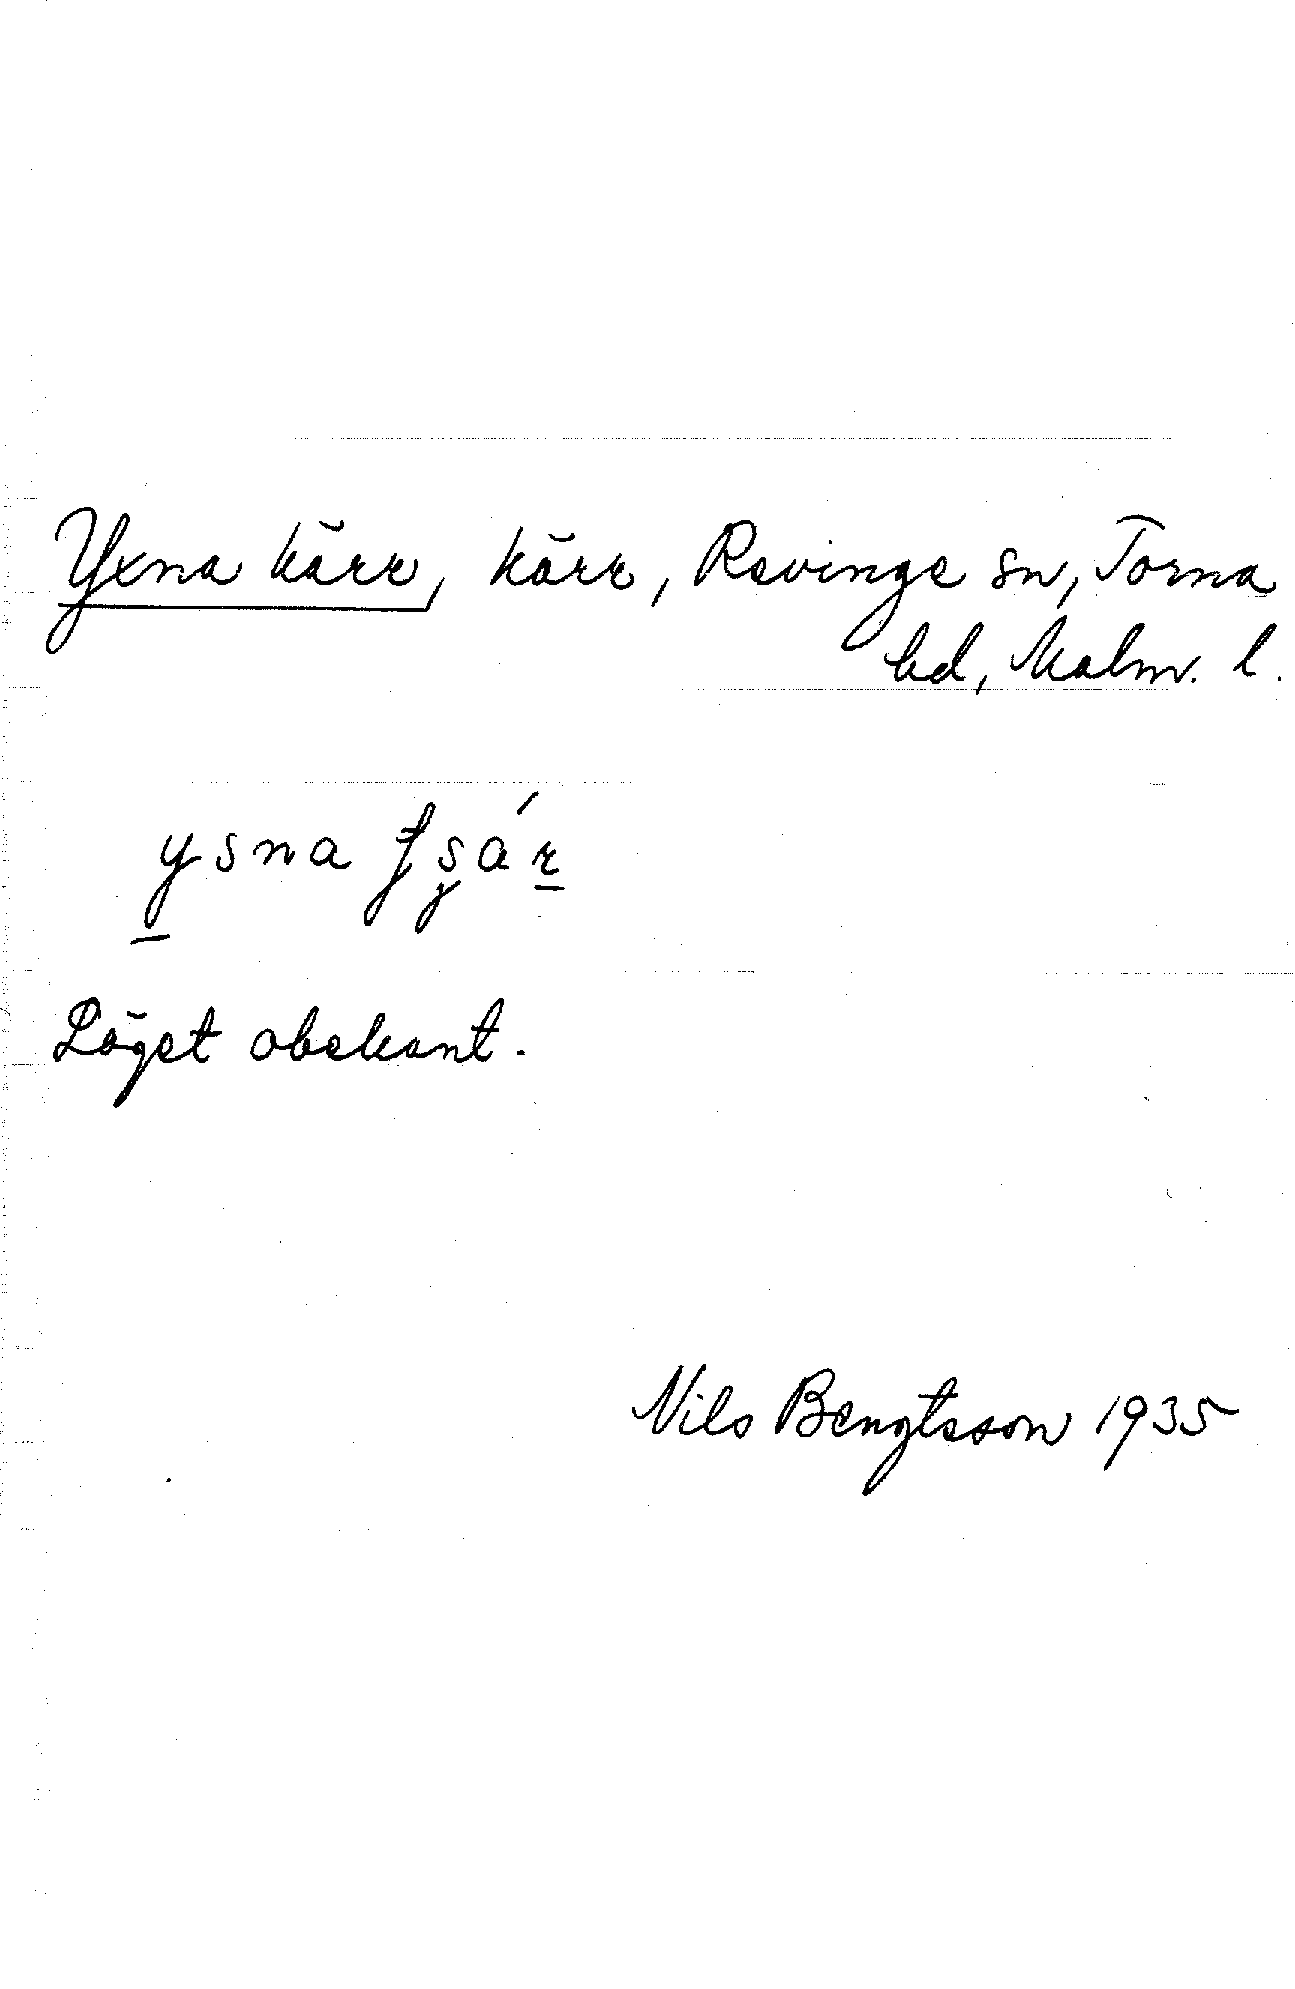 Yxna kärr, kärr, Revinge sn, Torna
hd, Malm. l.
ysna
Läget obekant.
Nils Bengtsson 1935